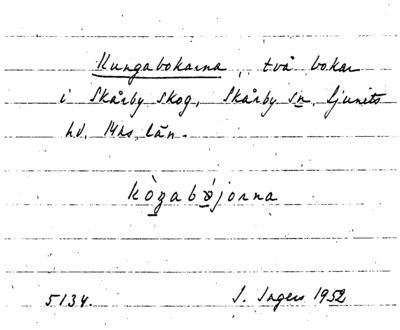 Kungabokarna, två bokar
i Skårby skog, Skårby sn. Ljunits
hd. Mhs. län.
kòzabǿjorna
5134. I. Ingers 1952